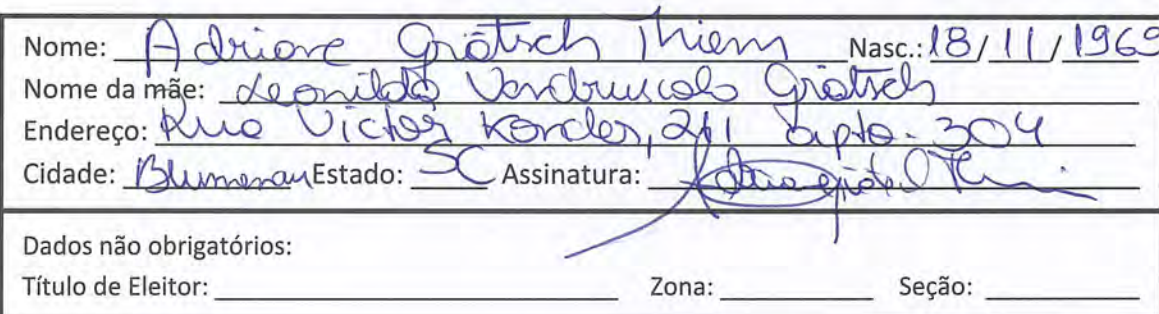 Nome: Adriane Grötsch Thiem Nasc.: 18/11/1969
Nome da mãe: Leonilda Vendbruscolo Grötsch
Endereço: Rua Victor Konder, 211 apto. 304
Cidade: Blumenau Estado: SC Assinatura:
Dados não obrigatórios:
Título de Eleitor: Zona: Seção: